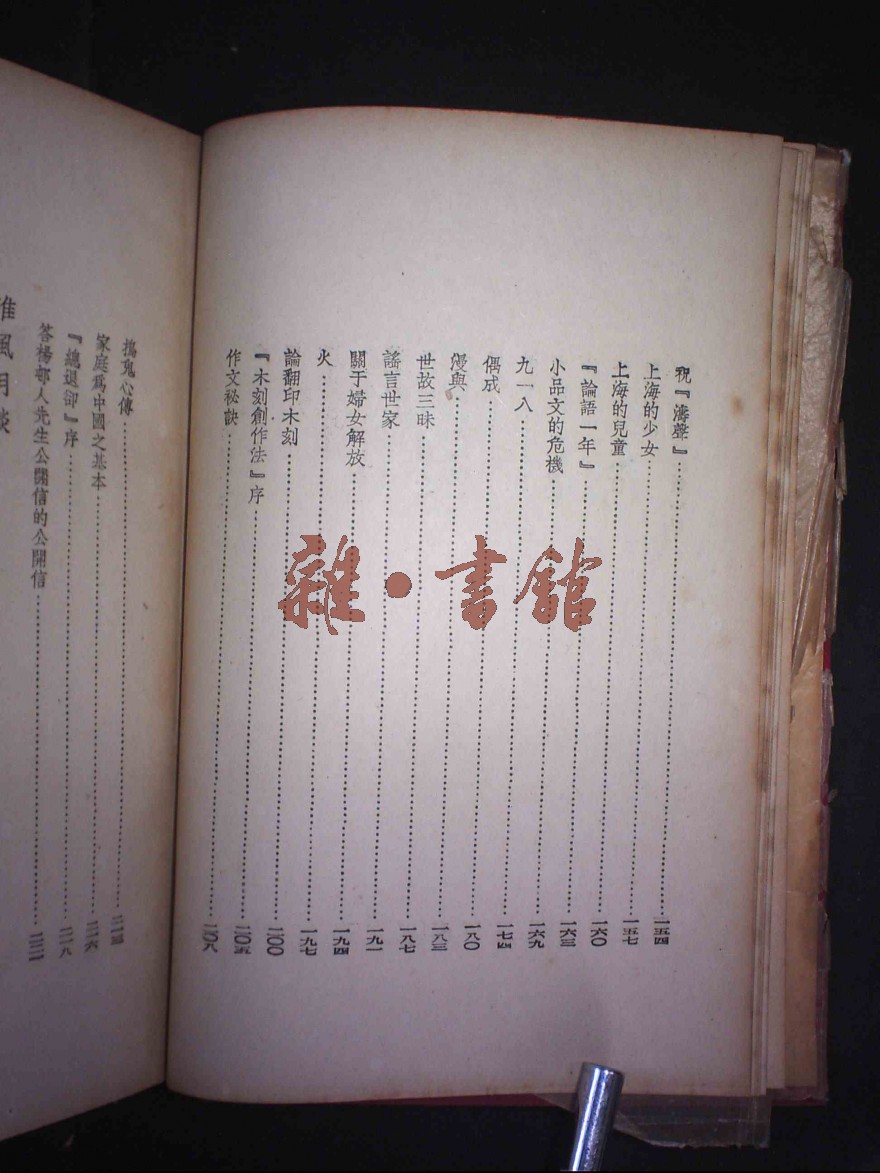 祝『濤聲』……一五四
上海的少女……一五七
上海的兒童……一六〇
『論語一年』……一六三
小品文的危機……一六九
九一八……一七四
偶成……一八〇
漫與……一八三
世故三昧……一八七
謠言世家……一九一
關于婦女解放……一九四
火……一九七
論翻印木刻……二〇〇
『木刻創作法』序……二〇五
作文秘訣……二〇八
搗鬼心傳……二一四
家庭爲中國之基本……二一六
『總退卻』序……二一八
答楊邨人先生公開信的公開信……二二一
准風月談
雜·書館